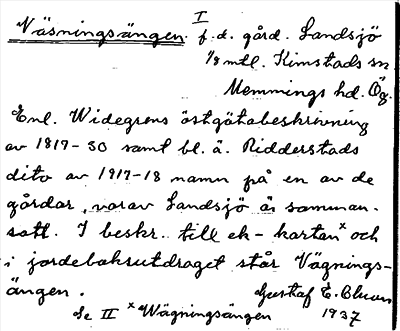 I
Väsningsängen. f.d. gård. Landsjö
1/8 mtl. Kimstads sn
Memmings hd. Ög.
Enl. Widegrens östgötabeskrivning
av 1817-30 samt bl. a. Ridderstads
dito av 1917-18 namn på en av de
gårdar, varav Landsjö är samman-
satt. I beskr. till ek-kartan x och
i jordeboksutdraget står Vägnings-
ängen. Gustaf E. Bluum
Se II x Wägningsängen 1937